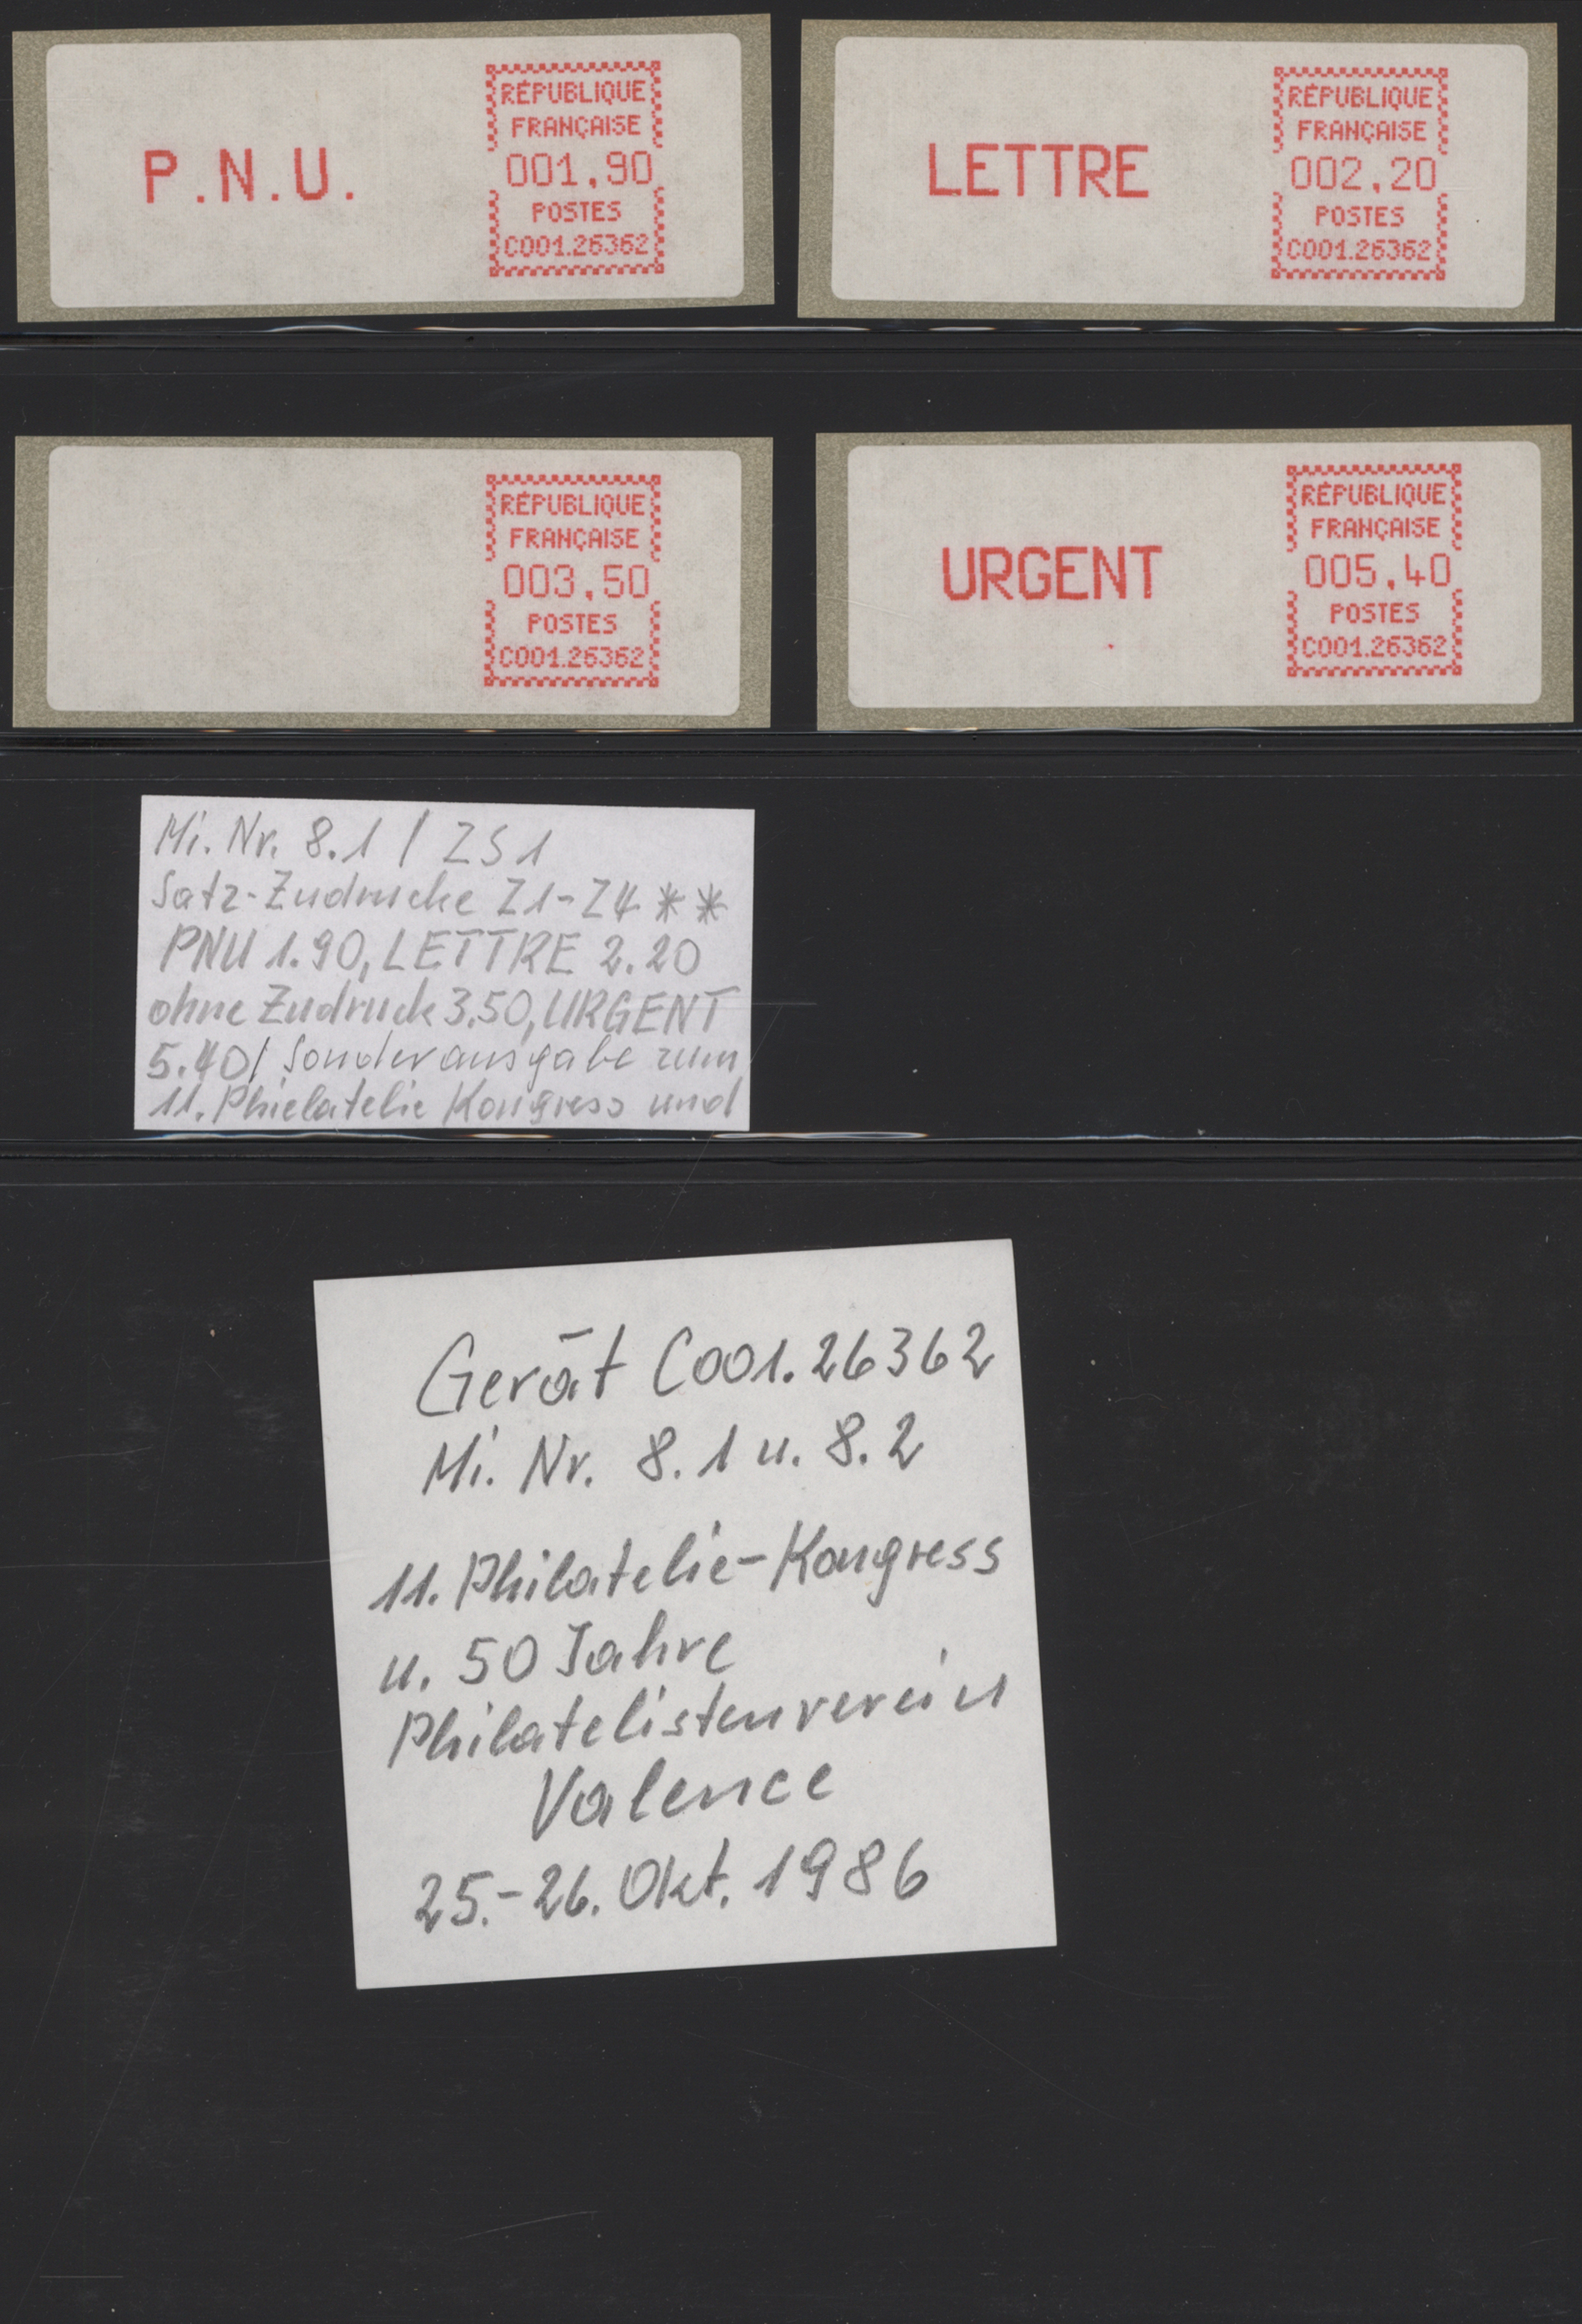 P.N.U.
RÉPUBLIQUE
FRANÇAISE
001,90
POSTES
C001.26362
LETTRE
RÉPUBLIQUE
FRANÇAISE
002,20
POSTES
C001.26362
RÉPUBLIQUE
FRANÇAISE
003,50
POSTES
C001.26362
URGENT
RÉPUBLIQUE
FRANÇAISE
005,40
POSTES
C001.26362
Mi. Nr. 8.1 / ZS 1
Satz-Zudrucke Z1-Z4 **
PNU 1.90, LETTRE 2.20
ohne Zudruck 3.50, URGENT
5.40 / Sonderausgabe zum
11. Phielatelie Kongress und
Gerät C001.26362
Mi. Nr. 8.1 u. 8.2
11. Philatelie-Kongress
u. 50 Jahre
Philatelistenverein
Valence
25.-26. Okt. 1986